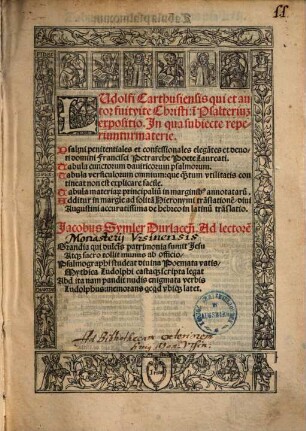 Tabula psalmorum
LUdolfi Carthusiensis qui et au
tor fuit vite Christi: in Psalteriuz
expositio. In qua subiecte repe
riuntur materie.
Psalmi penitentiales et confessionales elegātes et deuo
ti domini Francisci Petrarche Poete laureati.
Tabula cunctorum dauiticorum psalmorum.
Tabula versiculorum omnium: que quātum vtilitatis con
tineat non est explicare facile.
Tabula materiaꝝ principaliū in marginibꝰ annotatarū.
Additur in margīe ad solitā Hieronymi trāslationē diui
Augustini accuratissima de hebreo in latinū trāslatio.
Jacobus Symler Durlaceñ. Ad lectorē
Monasterij Vrsinensis
Grandia qui dulcis patrimonia sumit Jesu
Atqꝫ sacro tollit munus ab officio.
Psalmographi studeat diuina Poemata vatis/
Mythica Ludolphi castaqꝫ scripta legat
Abdita nam pandit nudis enigmata verbis
Ludolphus memorans qcqd vbiqꝫ latet.
Ad Bibliothecam